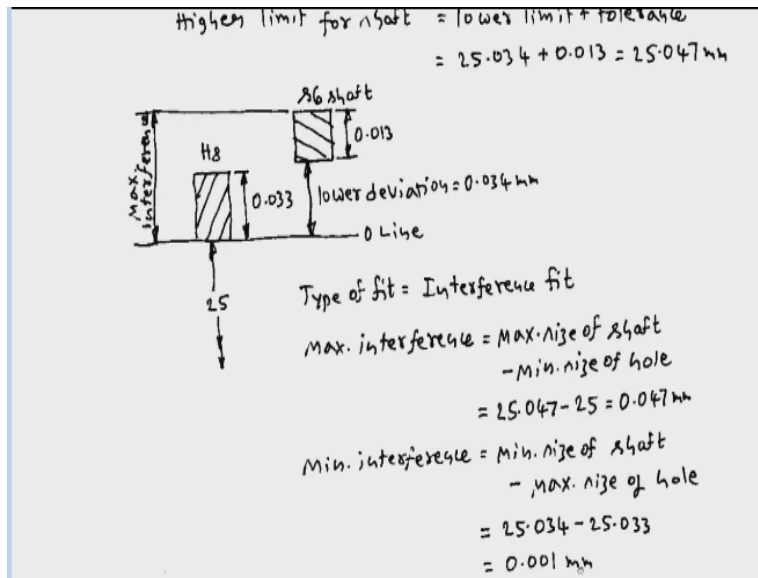 Higher limit for shaft = lower limit + tolerance
= 25.034 + 0.013 = 25.047 mm
s6 shaft
0.013
H8
Max. interference
0.033
lower deviation = 0.034 mm
0 Line
25
Type of fit = Interference fit
Max. interference = Max. size of shaft
- Min. size of hole
= 25.047 - 25 = 0.047 mm
Min. interference = Min. size of shaft
- Max. size of hole
= 25.034 - 25.033
= 0.001 mm